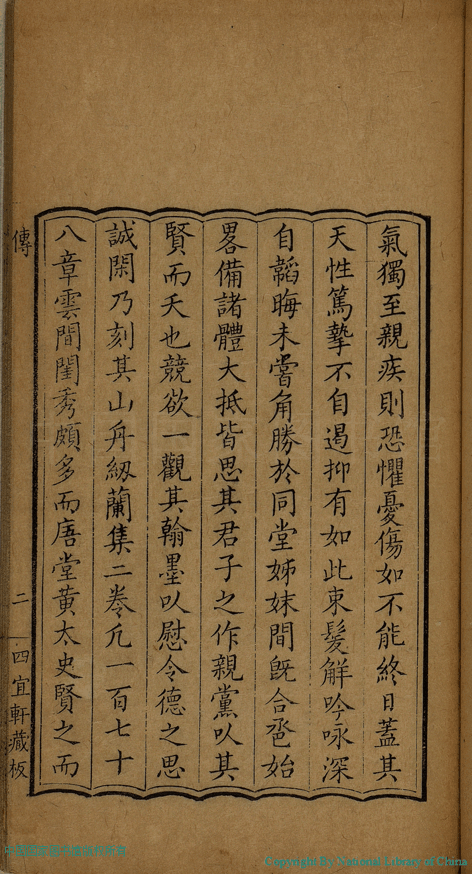 氣獨至親疾則恐懼憂傷如不能終日蓋其
天性篤摯不自遏抑有如此束髮解吟咏深
自韜晦未嘗角勝於同堂姊妹間旣合巹始
畧備諸體大抵皆思其君子之作親黨以其
賢而夭也競欲一觀其翰墨以慰令德之思
誠閑乃刻其山舟紉蘭集二卷凢一百七十
八章雲間閨秀頗多而唐堂黃太史賢之而
傳
二
四宜軒藏板
Copyright By National Library of China